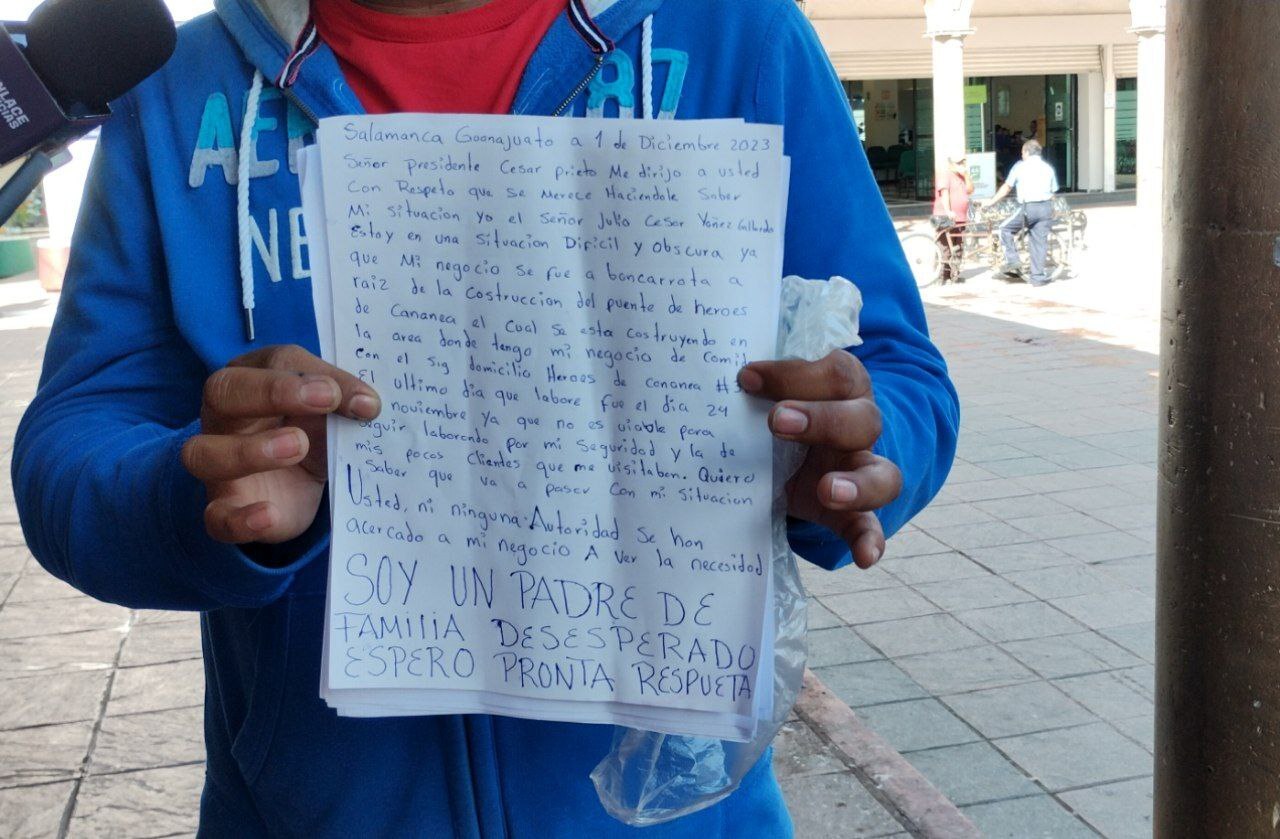 ENLACE
NOTICIAS
AE 87
NE
Salamanca Goonajuato a 1 de Diciembre 2023
Señor presidente Cesar prieto Me dirijo a usted
Con Respeto que Se Merece Haciendole Saber
Mi Situacion yo el Señor Julio Cesar Yañez Gallardo
Estoy en una Situacion Dificil y obscura ya
que Mi negocio Se fue a bancarrota a
raiz de la Costruccion del puente de heroes
de Cananea el Cual Se esta Costruyendo en
la area donde tengo mi negocio de Comid
Con el Sig domicilio Heroes de Cananea #3
El ultimo dia que labore fue el dia 24
noviembre ya que no es viable para
eguir laborando por mi Seguridad y la de
mis pocos Clientes que me visitaban. Quiero
Saber que va a pasar Con mi Situacion
Usted, ni ninguna Autoridad Se han
acercado a mi negocio A Ver la necesidad
SOY UN PADRE DE
FAMIlIA DESESPERADO
ESPERO PRONTA RESPUETA